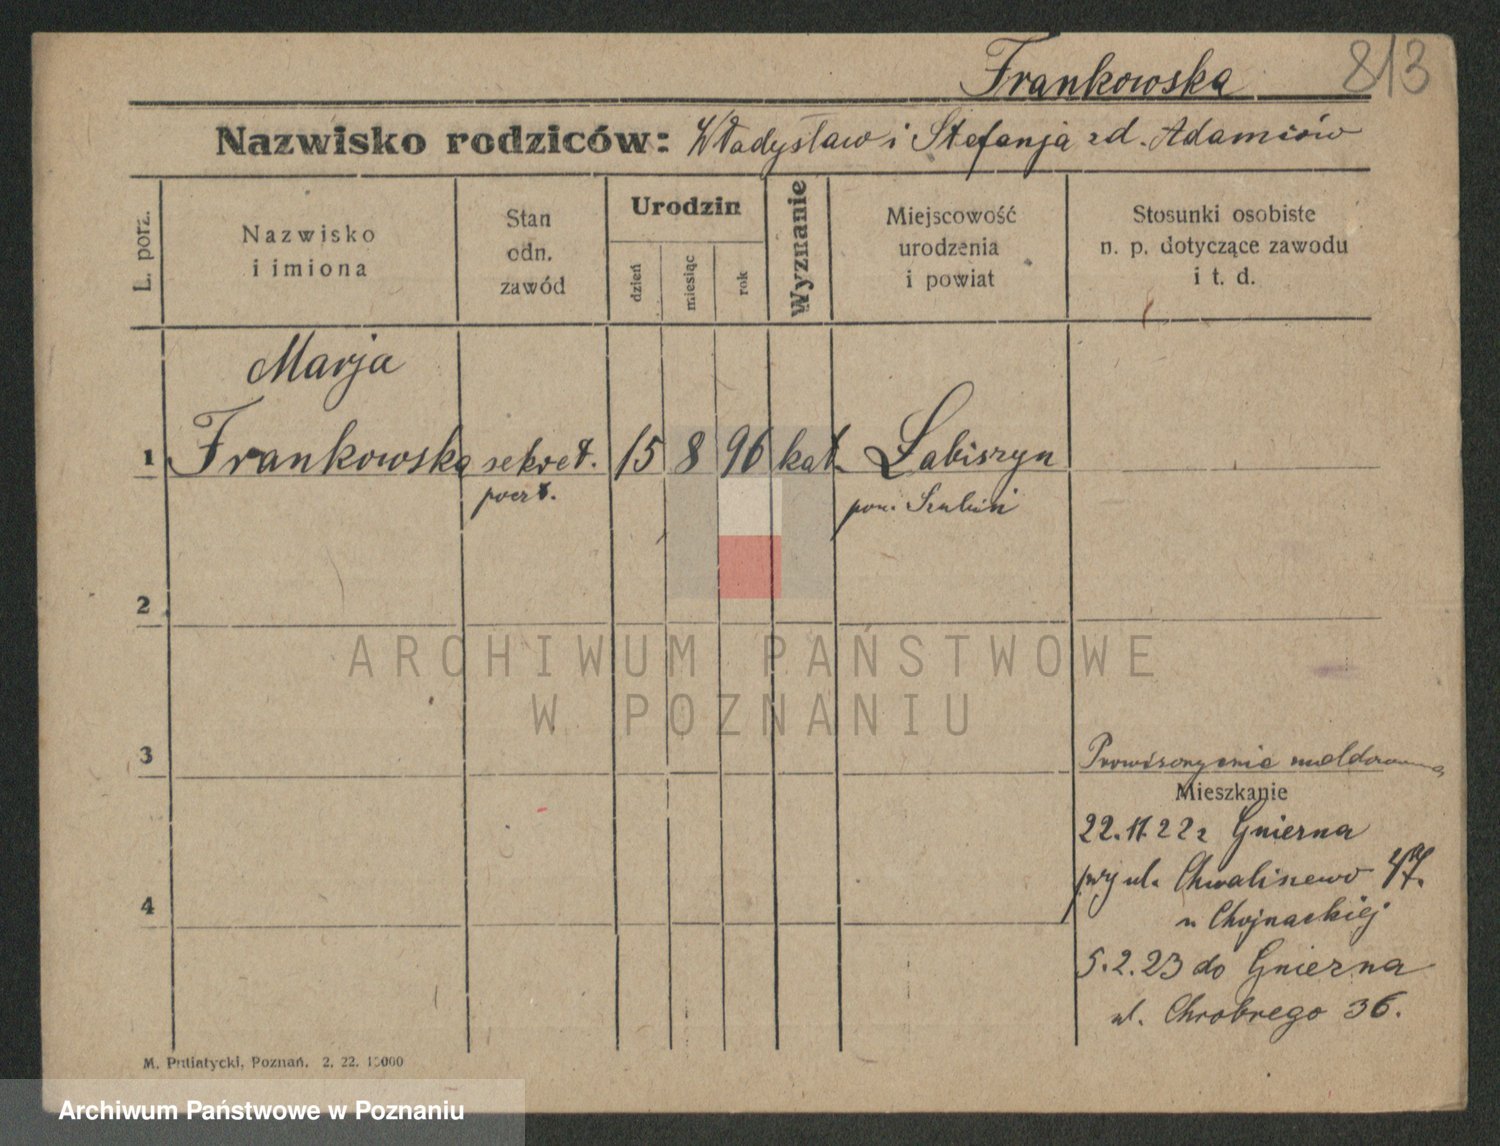 Frankowska
813
Nazwisko rodziców: Władysław i Stefanja zd. Adamców
L. porz.
Nazwisko
i imiona
Stan
odn.
zawód
Urodzin
dzień
miesiąc
rok
Wyznanie
Miejscowość
urodzenia
i powiat
Stosunki osobiste
n. p. dotyczące zawodu
i t. d.
Marja
1 Frankowska sekret. 15 8 96 kat. Łabiszyn
poczt. pow. Szubin
2
3
Mieszkanie
22.11.22 z Gniezna
przy ul. 47.
u Chojnackiej
4
5.2.23 do Gniezna
ul. Chrobrego 36.
M. Putiatycki, Poznań. 2. 22. 10000
ARCHIWUM PAŃSTWOWE
W POZNANIU
Archiwum Państwowe w Poznaniu